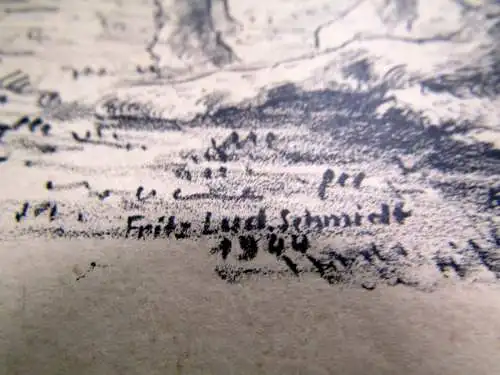 Fritz Lud. Schmidt
1944